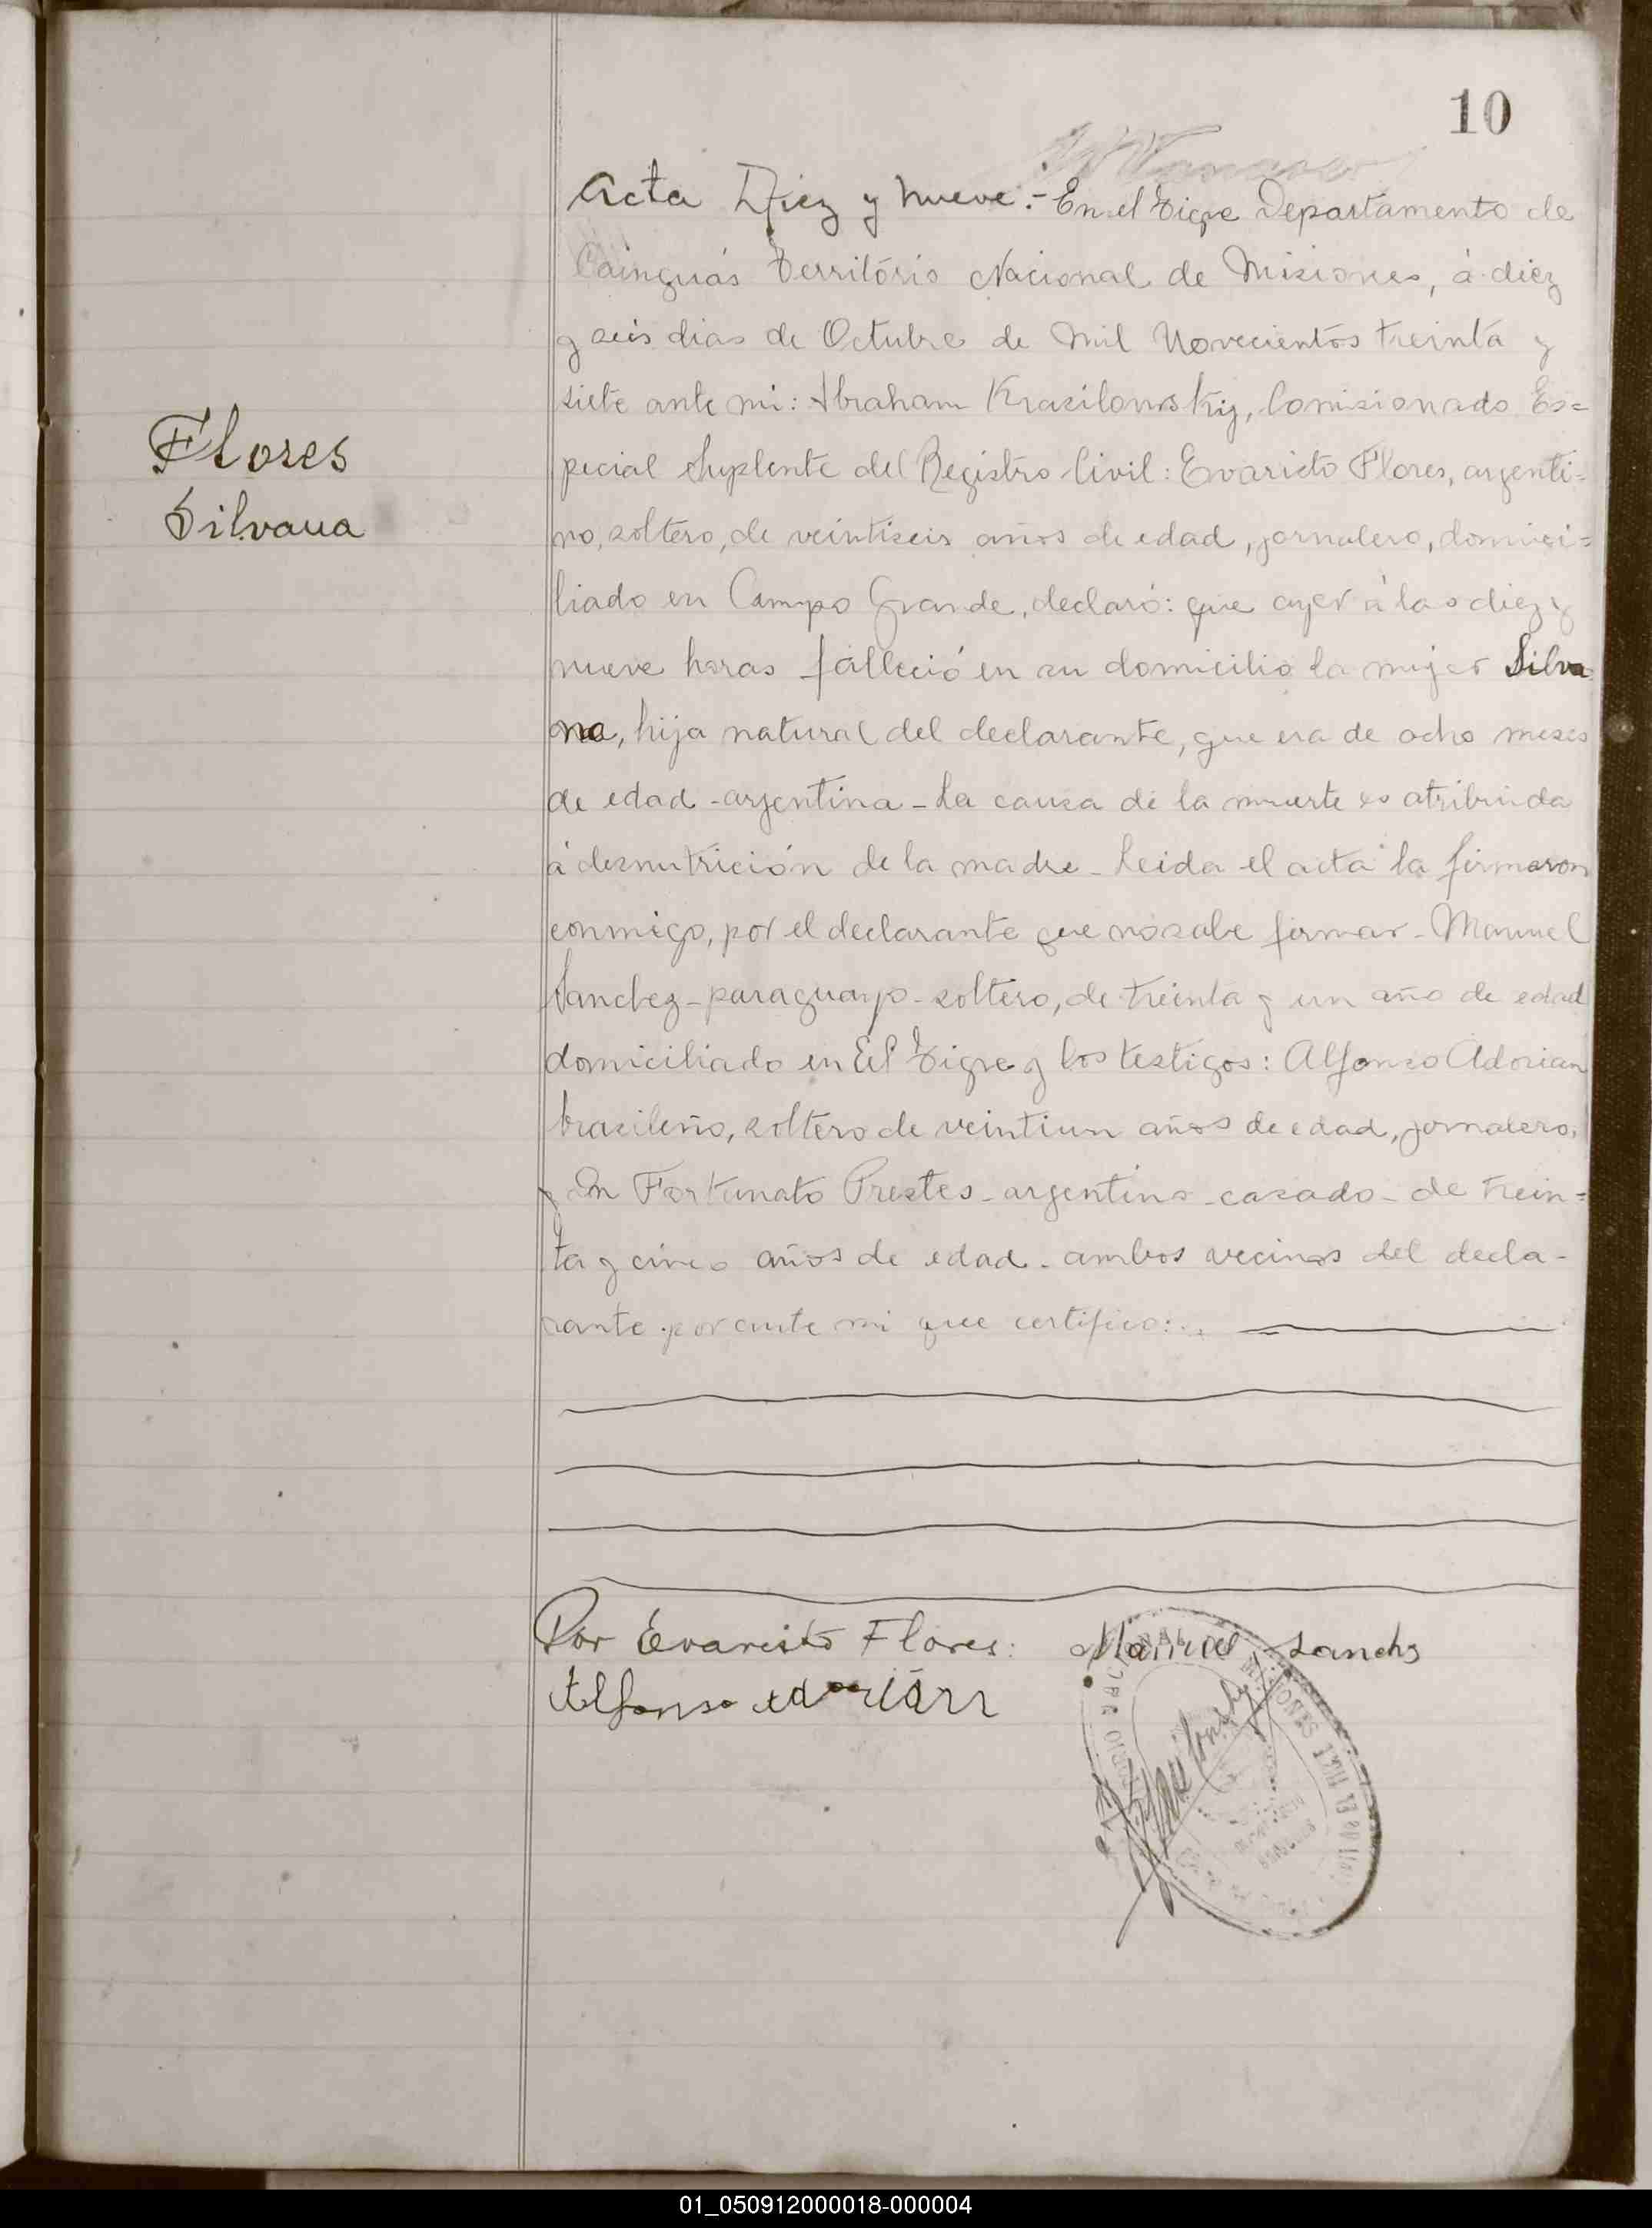 10
Acta Diez y nueve.- En el Tigre Departamento de
Cainguás Território Nacional de Misiones, á diez
y seis dias de Octubre de mil novecientos treinta y
siete ante mi: Abraham Krasilowskij, Comisionado Es=
pecial Suplente del Registro Civil: Evaristo Flores, argenti=
no, soltero, de veintiseis años de edad, jornalero, domici=
liado en Campo Grande, declaró: que ayer á las diez y
nueve horas falleció en su domicilio la mujer Silva
na, hija natural del declarante, que era de ocho meses
de edad - argentina - La causa de la muerte es atribuida
á desnutrición de la madre - Leida el acta la firmaron
conmigo, por el declarante que no sabe firmar - Manuel
Sanchez - paraguayo - soltero, de treinta y un año de edad
domiciliado en El Tigre y los testigos: Alfonso Adorian
brasileño, soltero de veintiun años de edad, jornalero,
y Dn Fortunato Prestes - argentino - casado - de trein=
ta y cinco años de edad - ambos vecinos del decla-
rante por ante mi que certifico:
Flores
Silvana
Por Evaristo Flores: Manuel Sanchs
Alfonso Adorian
01_050912000018-000004